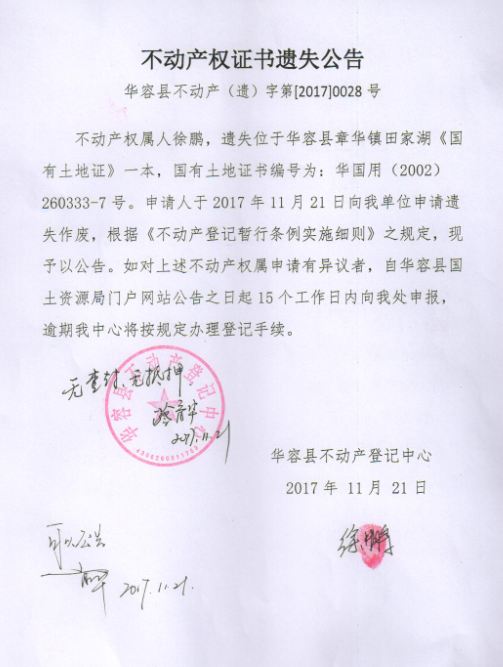 不动产权证书遗失公告
华容县不动产（遗）字第[2017]0028 号
不动产权属人徐鹏，遗失位于华容县章华镇田家湖《国
有土地证》一本，国有土地证书编号为：华国用（2002）
260333-7 号。申请人于 2017 年 11 月 21 日向我单位申请遗
失作废，根据《不动产登记暂行条例实施细则》之规定，现
予以公告。如对上述不动产权属申请有异议者，自华容县国
土资源局门户网站公告之日起 15 个工作日内向我处申报，
逾期我中心将按规定办理登记手续。
华容县不动产登记中心
无查封、无抵押
2017.11.21
华容县不动产登记中心
2017 年 11 月 21 日
徐鹏
可以公告
2017.11.21.